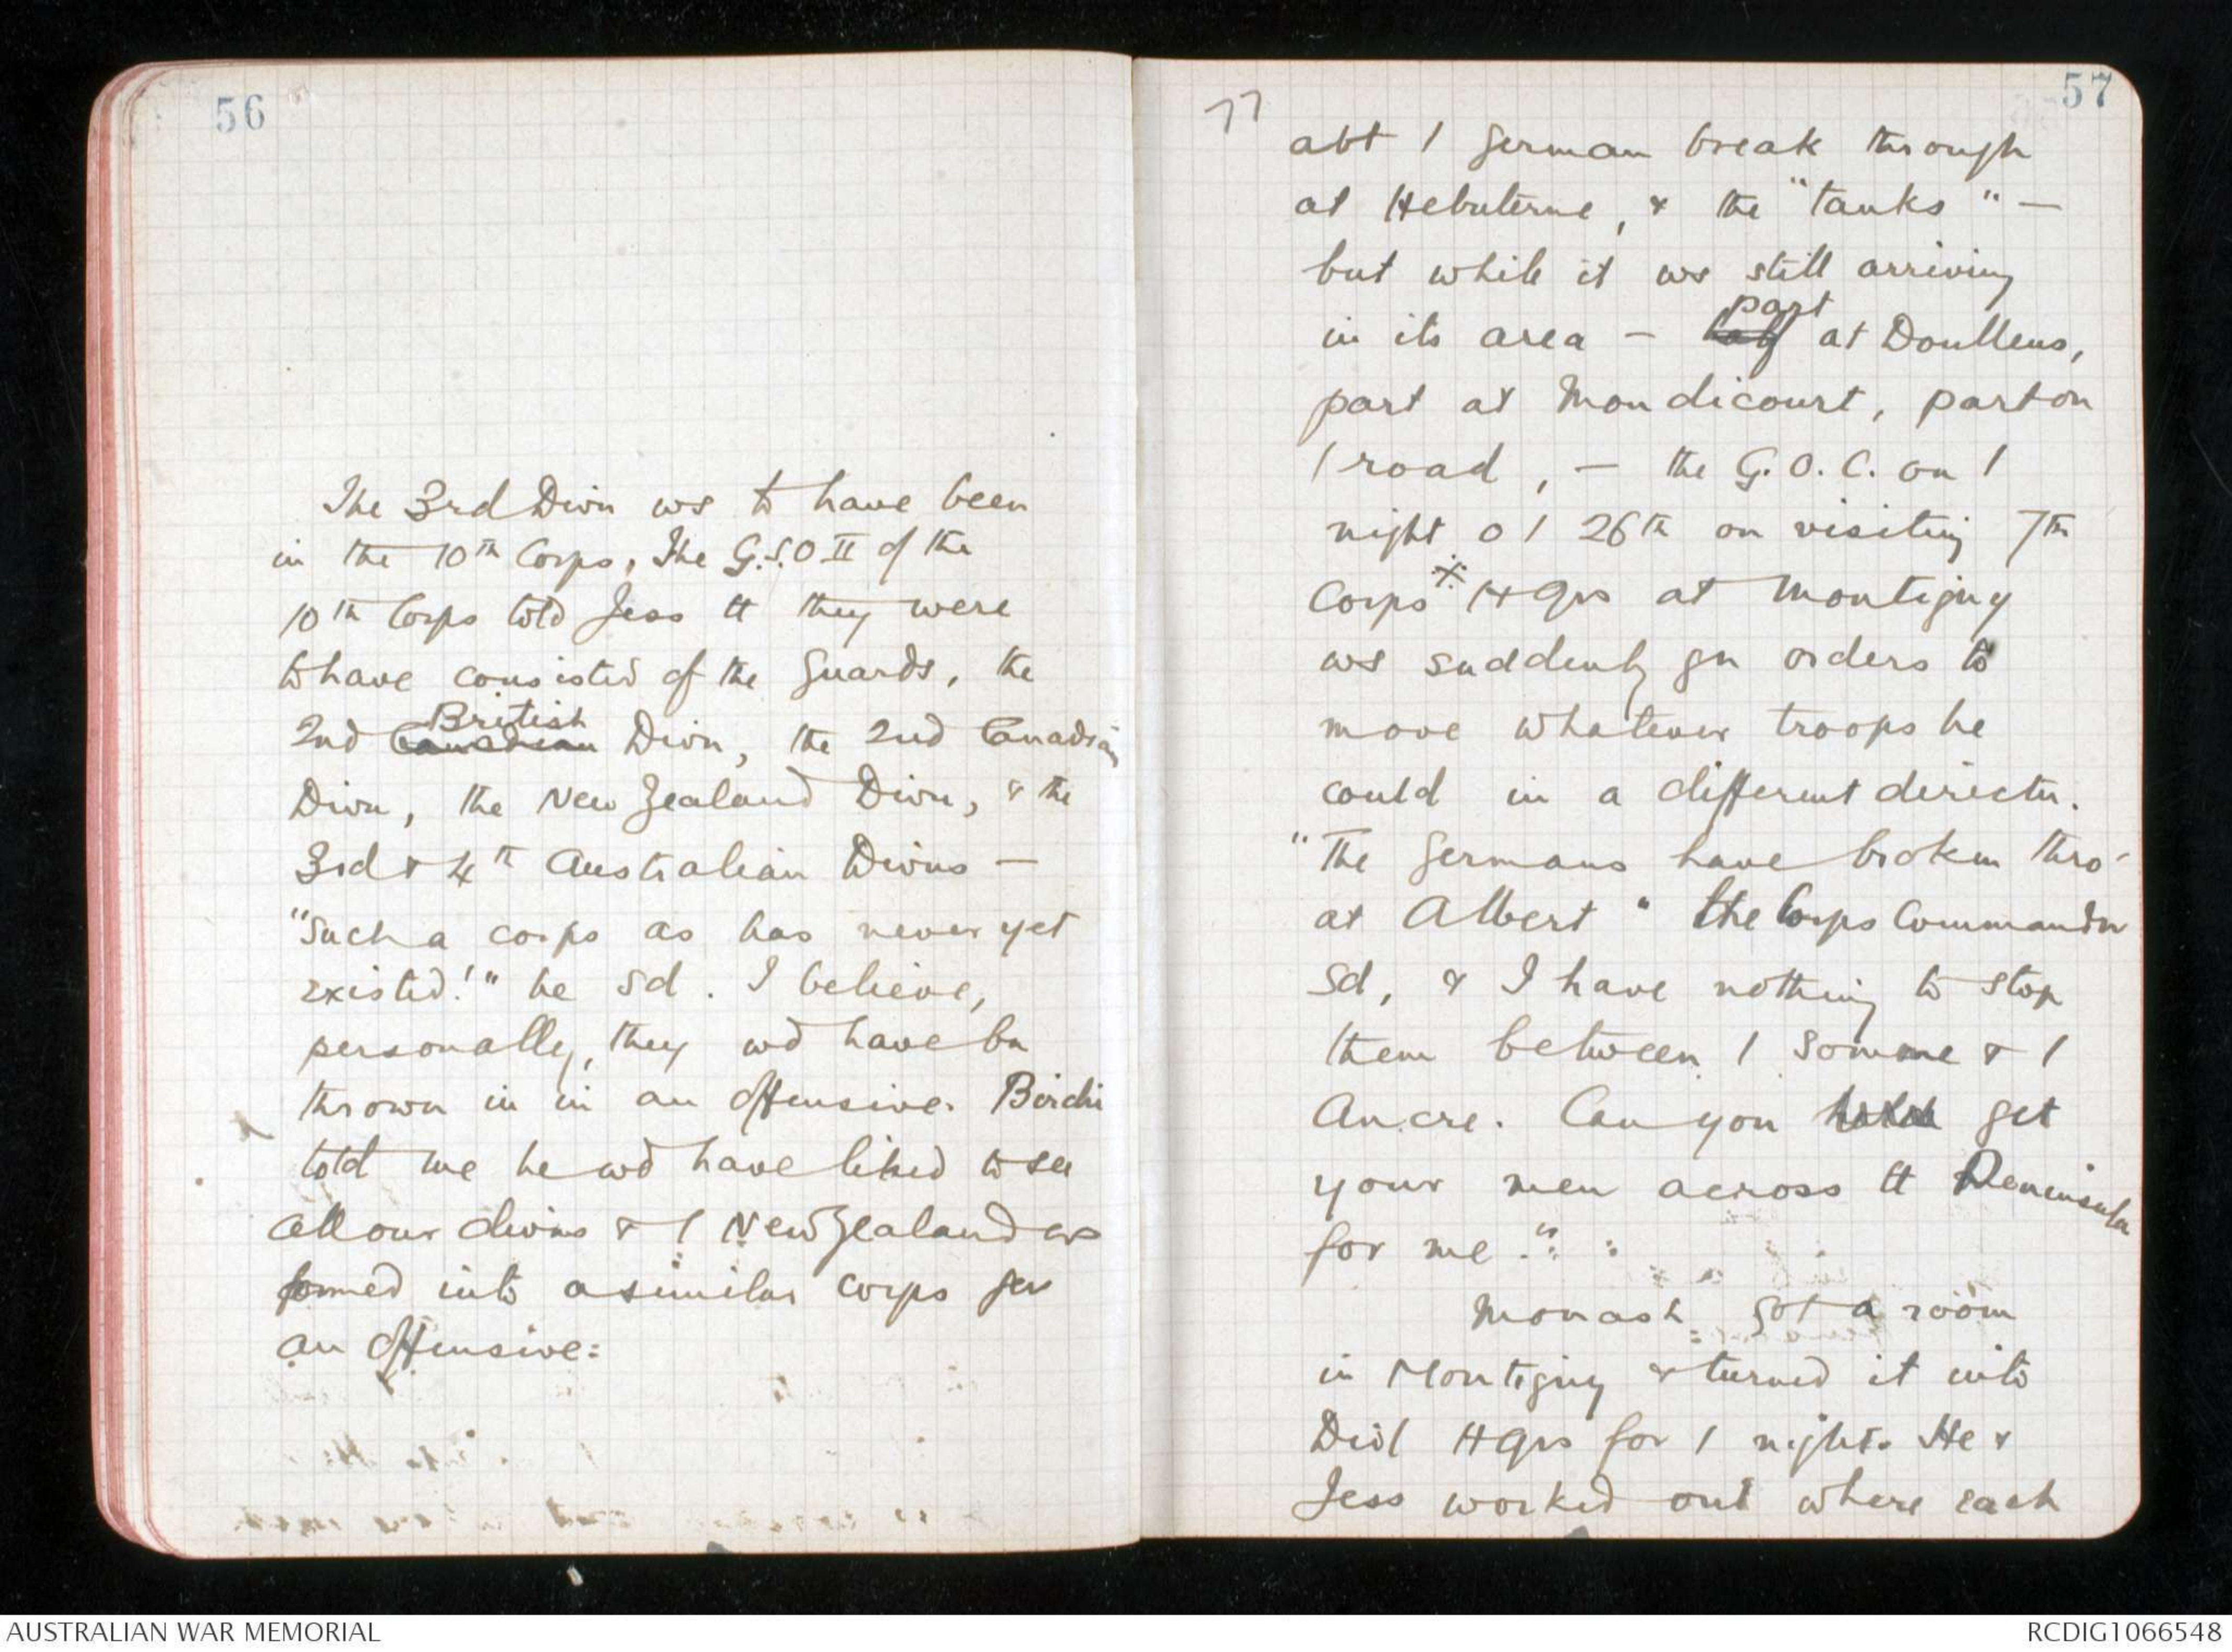 56
The 3rd Divn ws to have been
in the 10th Corps. The G.S.O II of the
10th Corps told Jess tt they were
to have consisted of the Guards, the
British
2nd Canadian Divn, the 2nd Canadian
Divn, the New Zealand Divn, & the
3rd & 4th Australian Divns —
"Such a corps as has never yet
existed!" he sd. I believe,
personally, they wd have bn
thrown in in an offensive. Birdie
told me he wd have liked to see
all our divns & / New Zealanders
formed into a similar corps for
an offensive.
77
57
abt / German break through
at Hebuterne, & the "tanks" —
but while it ws still arriving
part
in its area — half at Doullens,
part at Mondicourt, part on
/ road, — the G.O.C. on /
night o / 26th on visiting 7th
Corps HQrs at Montigny
ws suddenly gn orders to
move whatever troops he
could in a different directn.
"The Germans have broken thro'
at Albert" the Corps Commander
sd, & I have nothing to stop
them between / Somme & /
Ancre. Can you get
your men across tt Peninsula
for me."
Monash got a room
in Montigny & turned it into
Divl HQrs for / night. He &
Jess worked out where each
AUSTRALIAN WAR MEMORIAL
RCDIG1066548